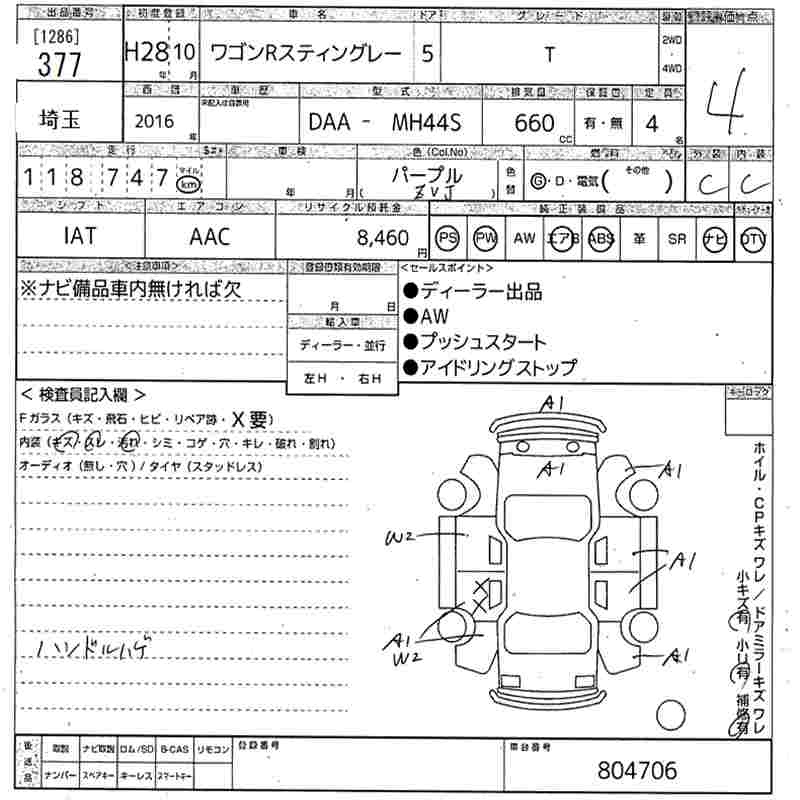 出品番号 初度登録 車名 ドア グレード 駆動 評価点
[1286]
377 H28年 10月 ワゴンRスティングレー 5 T 2WD 4WD 4
埼玉 2016年 車歴 型式 排気量 保証書 定員
未記入は自家用
DAA - MH44S 660 CC 有・無 4名
走行 車検 色(Col.No) 燃料 外装 内装
118747 マイル km 年 月 パープル (ZVJ) 色替 G・D・電気(その他) C C
シフト エアコン リサイクル預託金 純正装備品
IAT AAC 8,460円 PS PW AW エアB ABS 革 SR ナビ DTV
<注意事項> 登録書類有効期限 <セールスポイント>
※ナビ備品車内無ければ欠 月 日
輸入車
ディーラー・並行
左H ・ 右H
●ディーラー出品
●AW
●プッシュスタート
●アイドリングストップ
< 検査員記入欄 >
Fガラス(キズ・飛石・ヒビ・リペア跡・X要)
内装(キズ・スレ・汚れ・シミ・コゲ・穴・キレ・破れ・割れ)
オーディオ(無し・穴)/タイヤ(スタッドレス)
ハンドルハゲ
A1
A1
A1
W2
A1
X
X
A1
W2
A1
キーロマタ
ホイル・CPキズワレ/ドアミラーキズワレ
小キズ有 小U有 補修有
後送品 取説 ナビ取説 ロム/SD B-CAS リモコン 登録番号 車台番号
ナンバー スペアキー キーレス スマートキー 804706